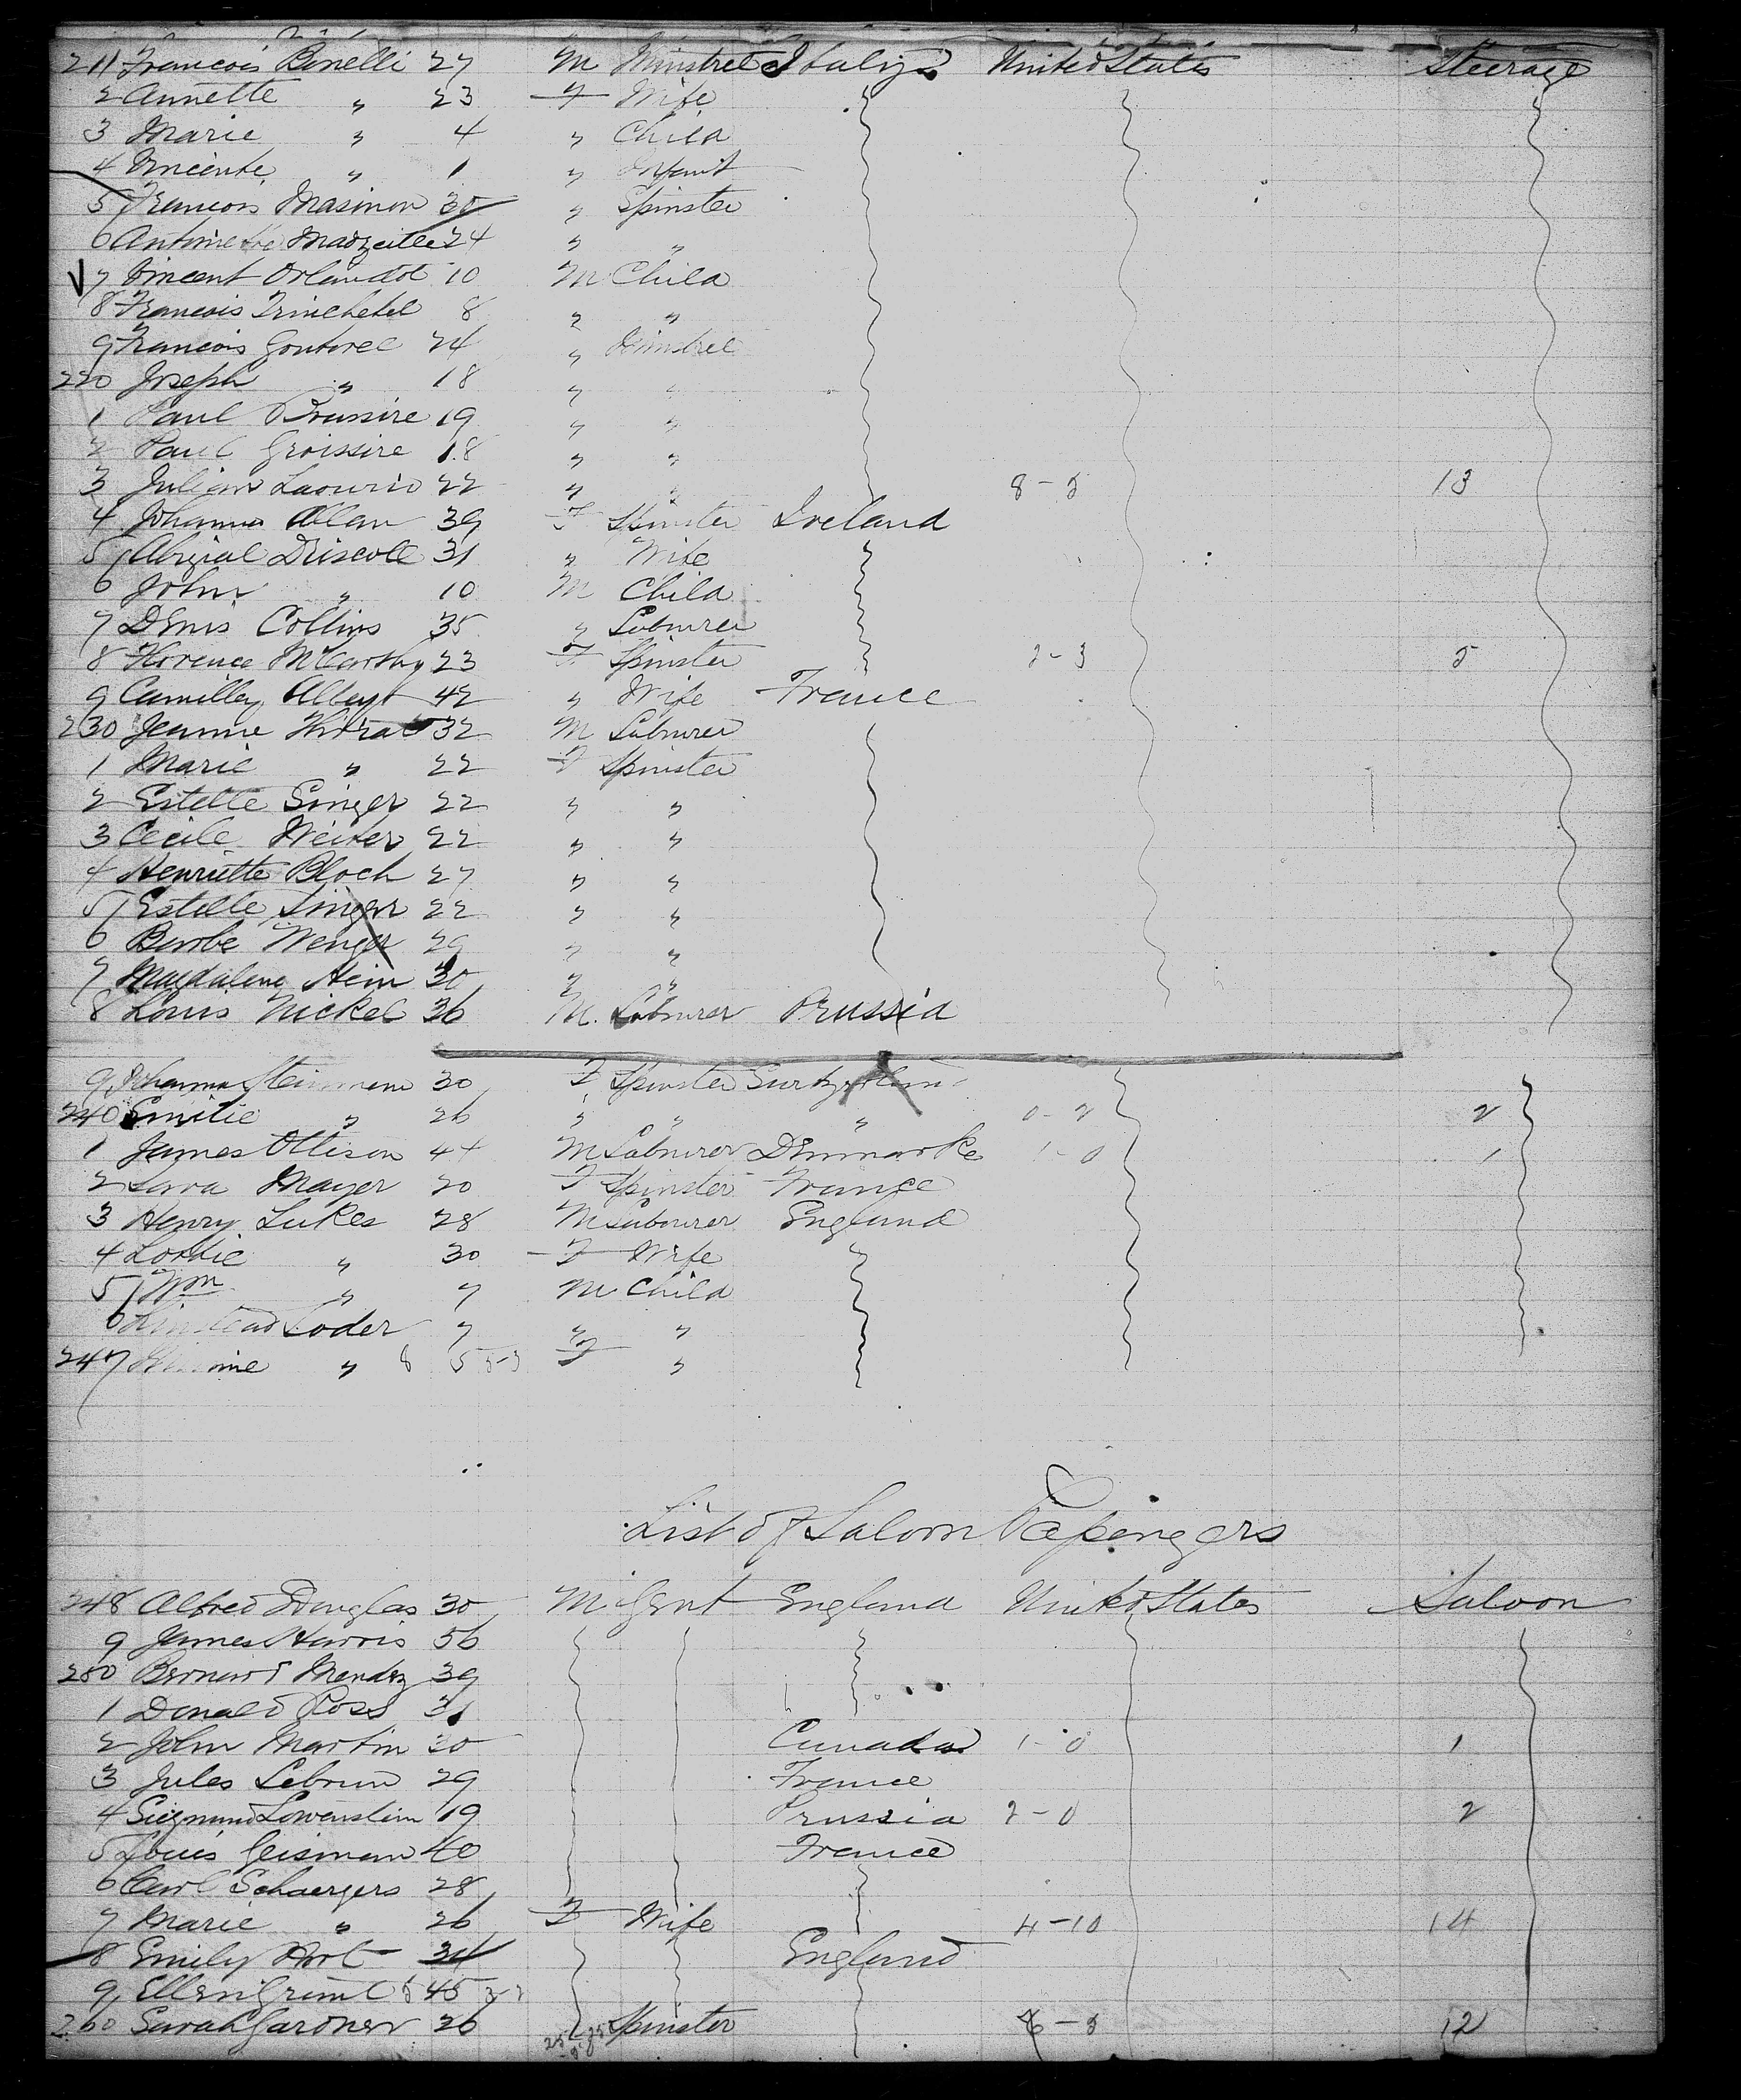 211 Francois Binelli 27 M Minstrel Italy United States Steerage
2 Annette " 23 F Wife
3 Marie " 4 " Child
4 Vincente " 1 " Infant
5 Francois Masinon 30 " Spinster
6 Antoinette 24 " "
7 Vincent Orlandot 10 M Child
8 Francois 8 " "
9 Francois 24 " Minstrel
220 Joseph " 18 " "
1 Paul Brussire 19 " "
2 Paul Groissire 18 " "
3 22 " " 8-5 13
4 Johanna Allan 39 F Spinster Ireland
5 Abigial Driscoll 31 " Wife
6 John " 10 M Child
7 Denis Collins 35 " Labourer
8 Florence McCarthy 23 F Spinster 2-3 5
9 Camilley 42 " Wife France
230 Jeanne 32 M Labourer
1 Marie " 22 F Spinster
2 Estelle Singer 22 " "
3 Cecile 22 " "
4 Henriette Bloch 27 " "
5 Estelle Singer 22 " "
6 Barbe Wenger 29 " "
7 Magdalena Hein 30 " "
8 Louis Nickel 36 M. Labourer Prussia
9 Johanna 30 F Spinster
240 Emilie " 26 " " " 0-2 2
1 James Ottison 44 M Labourer Denmark 1-0 1
2 Sara Mayer 20 F Spinster France
3 Henry Lukes 28 M Labourer England
4 Lottie " 30 F Wife
5 Wm " 7 M Child
6 Loder 7 " "
247 " 8 5 5-3 F "
List of Saloon Passengers
248 Alfred Douglas 30 M Gent England United States Saloon
9 James Harris 56
250 Bernard Mendez 39
1 Donald Ross 31
2 John Martin 30 Canada 1-0 1
3 Jules Lebrun 29 France
4 Siegmund Lowenstein 19 Prussia 2-0 2
5 Louis Geismann 40 France
6 Carl Schaergers 28
7 Marie " 26 F Wife 4-10 14
8 Emily 34 England
9 Ellen 45
260 Sarah Gardner 26 Spinster 12